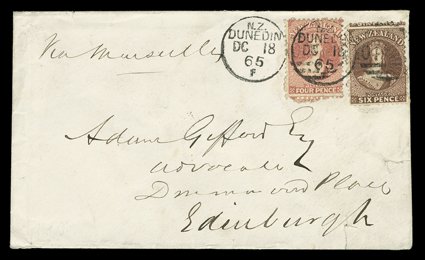 Via Marseille
N.Z.
DUNEDIN
DC 18
65
F
N.Z.
DUNEDIN
DC 18
65
FOUR PENCE
NEW ZEALAND
SIX PENCE
Adam Gifford Esq
Advocate
Drummond Place
Edinburgh